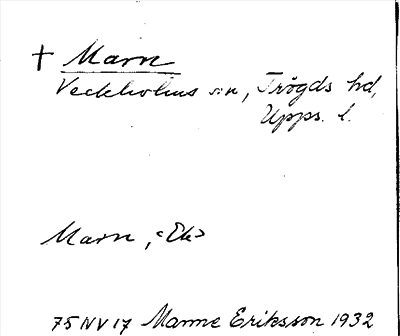 † Marn
Veckholms sn, Trögds hd,
Upps. l.
Marn, <Ek>
75NV17 Manne Eriksson 1932